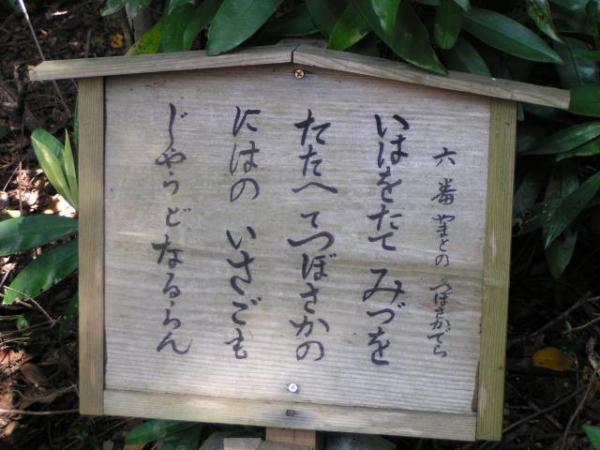 六番 やまとの つぼさかでら
いはをたて みづを
たたへてつぼさかの
にはの いさごも
じやうどなるらん